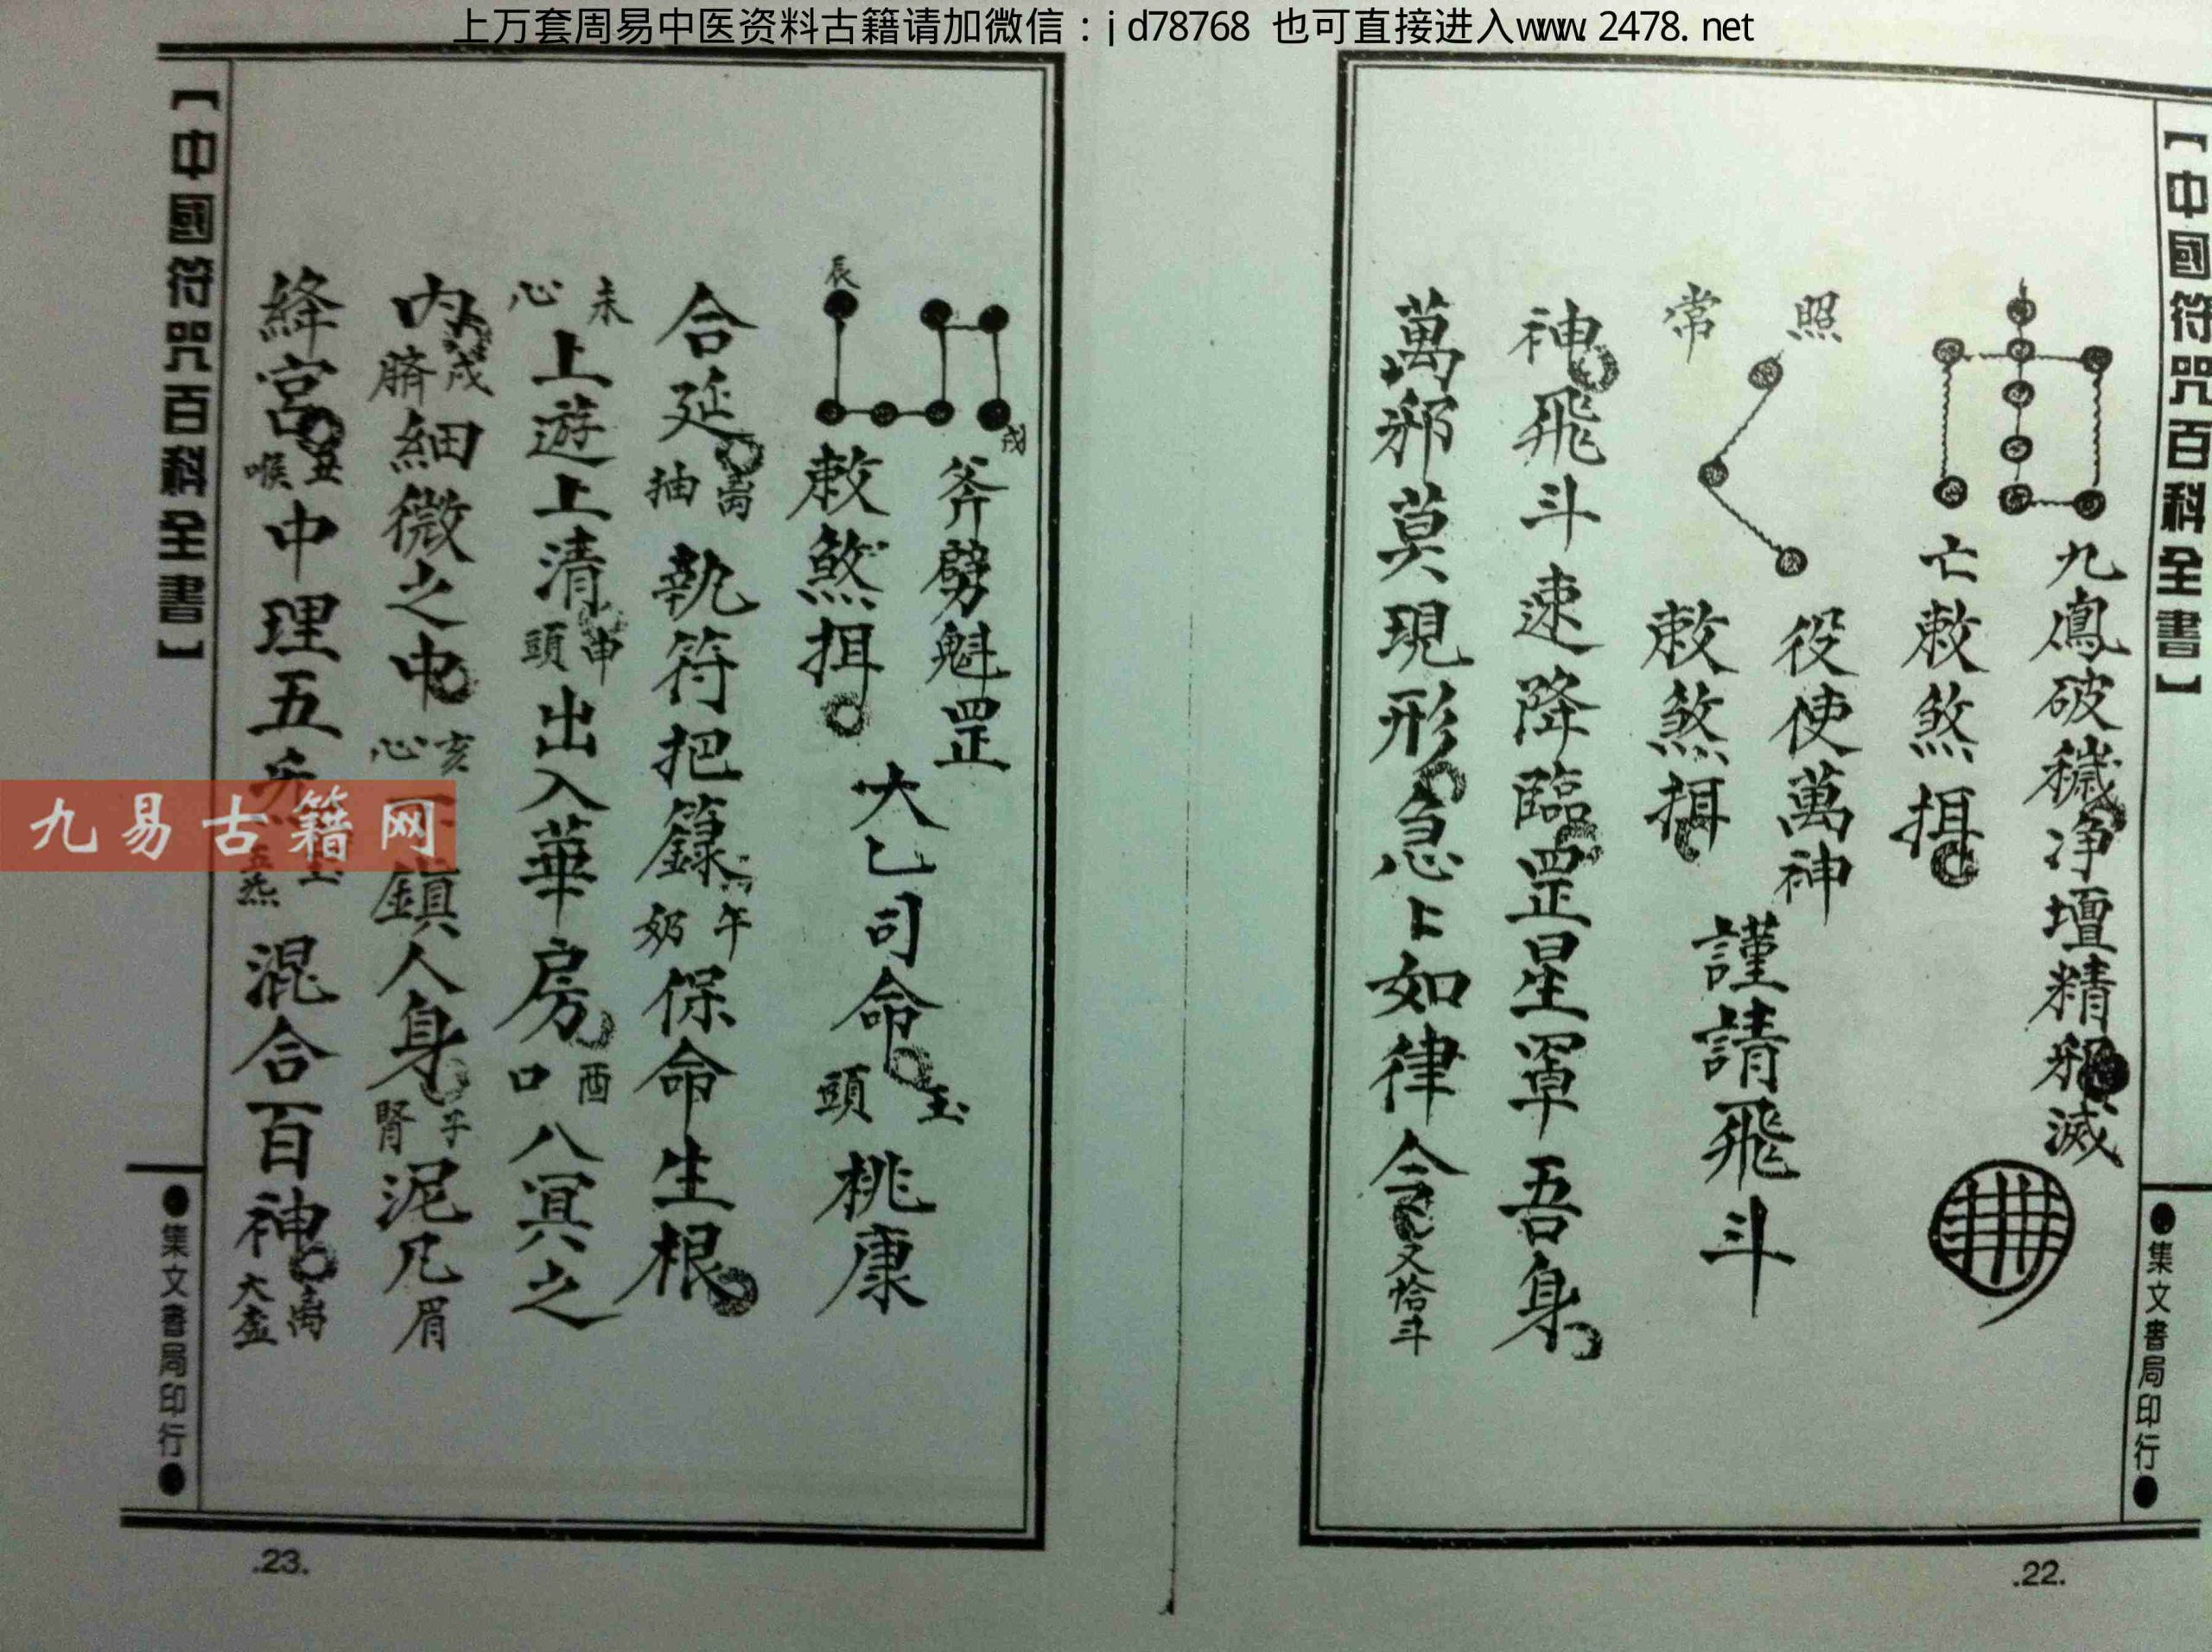 上万套周易中医资料古籍请加微信：jd78768 也可直接进入www.2478.net
【中國符咒百科全書】
●集文書局印行●
九鳳破穢淨壇精邪滅
亡敕煞揖
照
役使萬神
常
敕煞揖
謹請飛斗
神飛斗速降臨罡星罩吾身
萬邪莫現形急乚如律令又恰斗
.22.
戌
斧劈魁罡
辰
敕煞揖
大乙司命玉頭桃康
合延卨抽執符把籙午奶保命生根
未心上遊上清申頭出入華房酉口八冥之
内戌臍細微之中亥心下鎮人身子腎泥凡眉
絳宮丑喉中理五炁玉五炁混合百神卨大盆
【中國符咒百科全書】
●集文書局印行●
.23.
九易古籍网